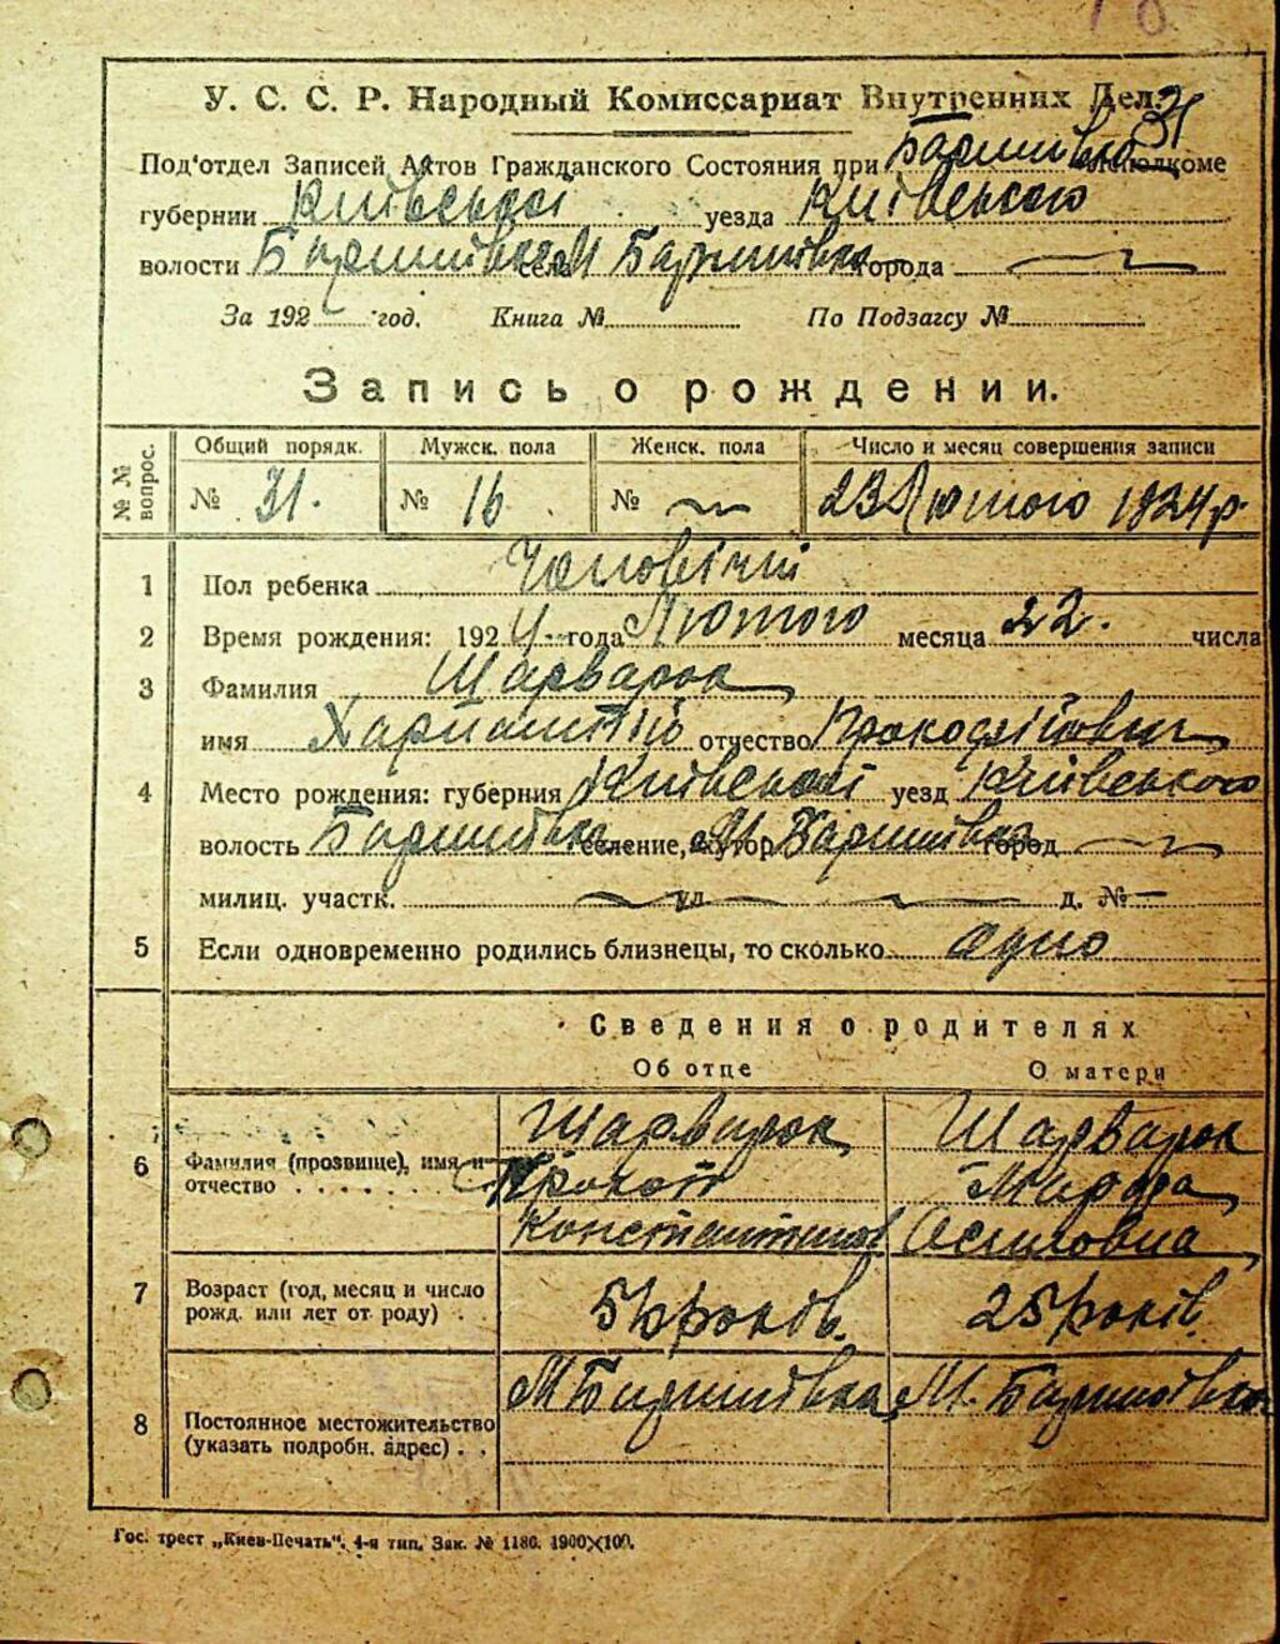 У. С. С. Р. Народный Комиссариат Внутренних Дел.
31
Под'отдел Записей Актов Гражданского Состояния при Баришівка Исполкоме
губернии Київської уезда Київського
волости Баришівка села М Баришівка города
За 192 год. Книга № По Подзагсу №
Запись о рождении.
№ № вопрос. Общий порядк. Мужск. пола Женск. пола Число и месяц совершения записи
№ 31. № 16 № 23 Лютого 1924 р.
1 Пол ребенка Чоловічий
2 Время рождения: 1924 года Лютого месяца 22. числа
3 Фамилия Шарварок
имя отчество
4 Место рождения: губерния Київської уезд Київського
волость Баришівка селение, хутор М Баришівка город
милиц. участк. ул. д. №
5 Если одновременно родились близнецы, то сколько Одно
Сведения о родителях
Об отце О матери
Шарварок Шарварок
6 Фамилия (прозвище), имя и отчество Прокоп
Осиповна
7 Возраст (год, месяц и число рожд. или лет от роду) років. 25 років.
8 Постоянное местожительство (указать подробн. адрес) М Баришівка М. Баришівка
Гос. трест „Киев-Печать“, 4-я тип. Зак. № 1180. 1900×100.